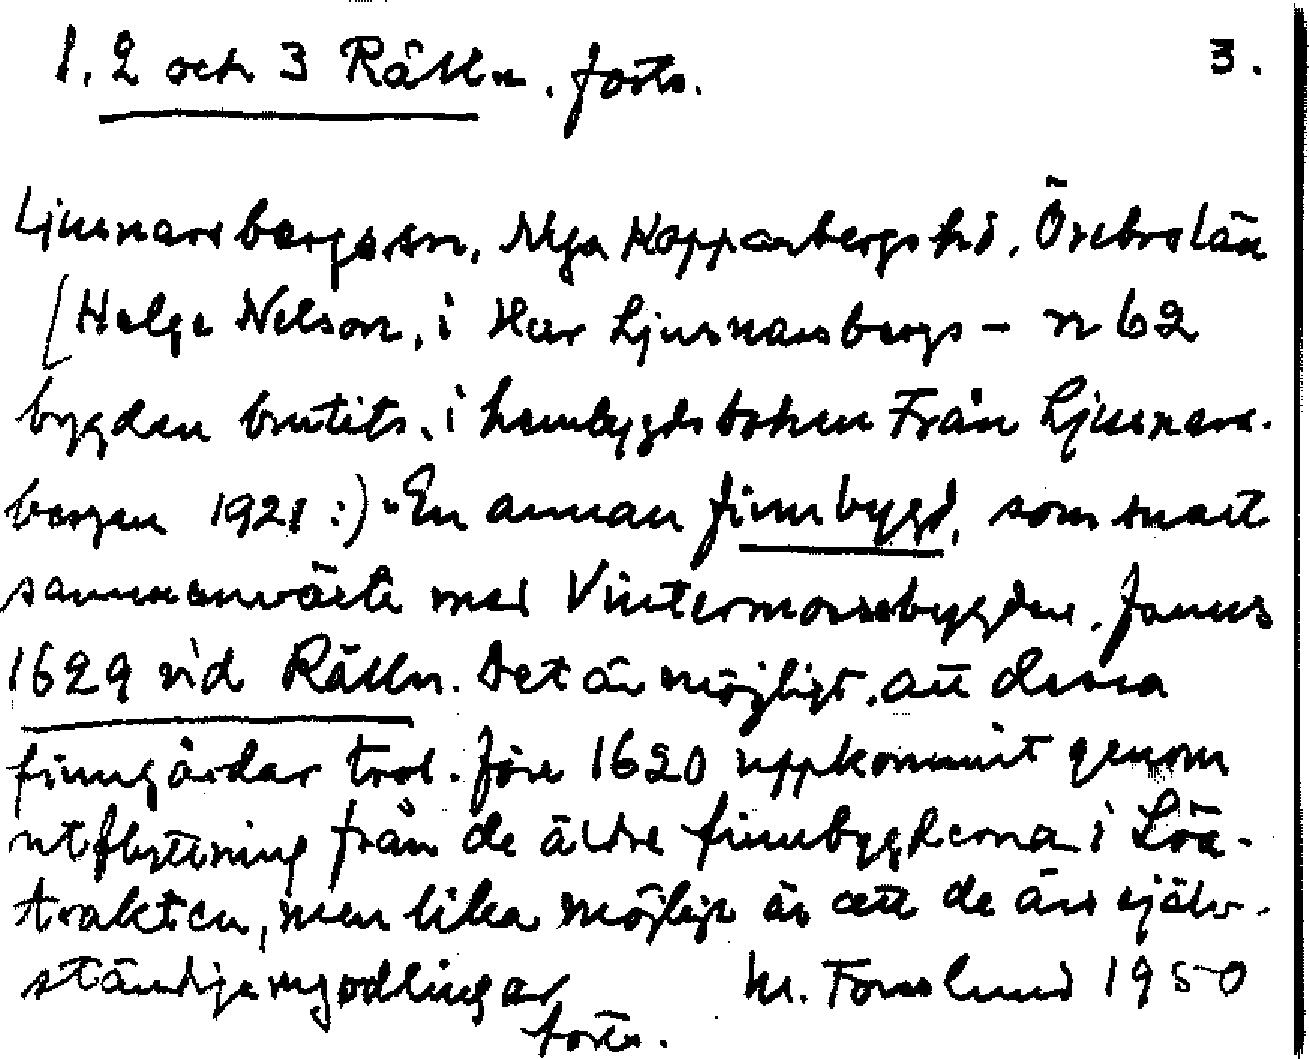 1, 2 och 3 Rälln. forts. 3.
Ljusnarsbergs sn, Nya Kopparbergs hd, Örebro län
(Helge Nelson, i Hur Ljusnarsbergs- n 62
bygden brutits, i hembygdsboken Från Ljusnars-
bergen 1921:) "En annan finnbygd, som snart
sammanväxte med Vintermossebygden, fanns
1629 vid Rälln. Det är möjligt, att dessa
finngårdar trol. före 1620 uppkommit genom
utflyttning från de äldre finnbygderna i Löa-
trakten, men lika möjligt är att de äro själv-
ständiga nyodlingar M. Forslund 1950
forts.